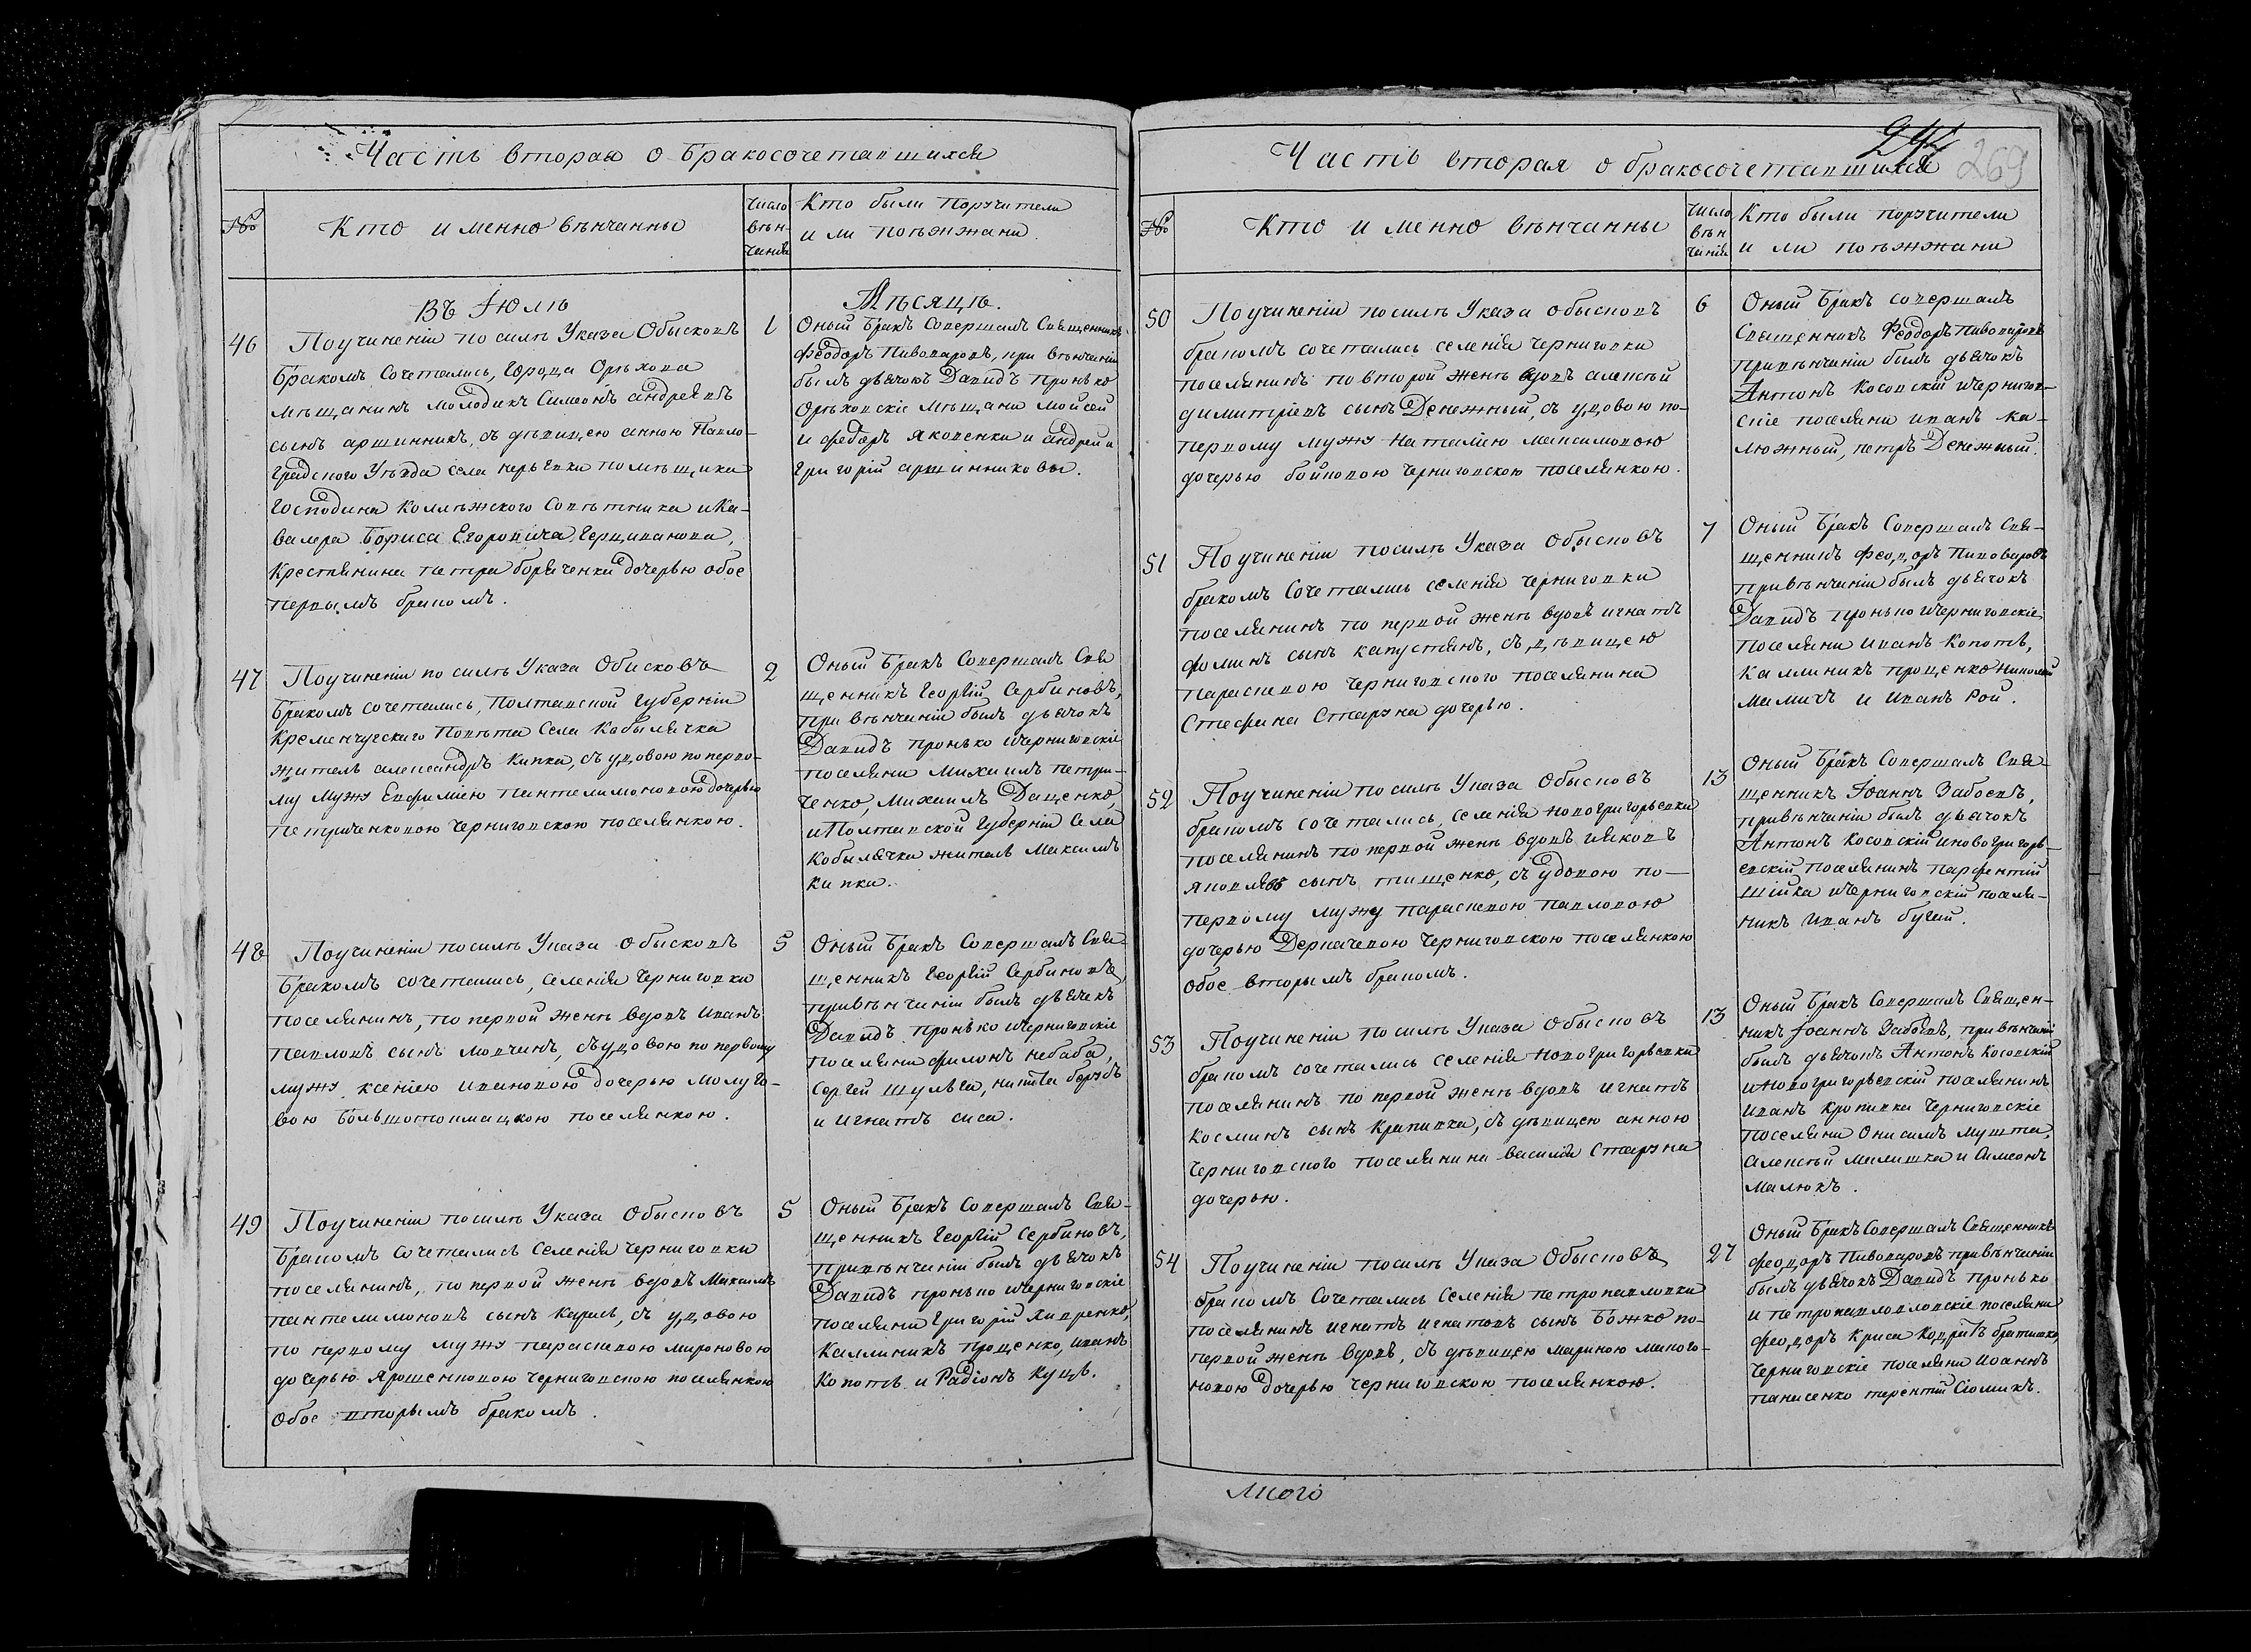 Часть вторая о бракосочетавшихся
№
Кто именно вѣнчанны
Число
вѣн-
чанія
Кто были поручители
или поѣзжани
Въ Іюлѣ
Мѣсяцѣ.
46
Поучиненіи посилѣ Указа Обысковъ
бракомъ сочетались, города Орѣхова
мѣщанинъ молодикъ Симеонъ андреевъ
сынъ аршинникъ, съ дѣвицею анною Павло-
градского Уѣзда села помѣщика
Господина Колѣжского Совѣтника и Ка-
валера Бориса Егоровича
Крестянина петра боряченка дочерью обое
первымъ бракомъ.
1
Оный бракъ Совершалъ Священникъ
Феодоръ Пивоваровъ, при вѣнчаніи
былъ дьячокъ Давидъ Пронько
Орѣховскіе мѣщани Мойсей
и федоръ яковенки и андрей и
григорій аршинниковы.
47
Поучиненіи по силѣ Указа Обисковъ
бракомъ сочетались, Полтавской губерніи
Кременчугскаго Повѣта Села Кобылячка
житель александръ Кипка, съ удовою по перво-
му мужу Евфиміею Пантелимоновою дочерью
Петриченковою черниговскою поселянкою.
2
Оный бракъ Совершалъ Свя
щенникъ Георгій Сербиновъ,
при вѣнчаніи былъ дьячокъ
Давидъ Пронько и Черниговскіе
поселяни Михаилъ Петри-
ченко, Михаилъ Даценко,
и Полтавской губерніи Села
Кобылячка житель Максимъ
Кипка.
48
Поучиненіи посилѣ Указа Обысковъ
бракомъ сочетались, селенія Черниговки
поселянинъ, по первой женѣ вдовъ Иванъ
Павловъ сынъ Мовчанъ, съ удовою по первому
мужу ксеніею ивановою дочерью Молуго-
вою большотокмацкою поселянкою.
5
Оный бракъ Совершалъ Свя-
щенникъ Георгій Сербиновъ,
при вѣнчаніи былъ дьячекъ
Давидъ Пронько и Черниговскіе
поселяни филонъ небаба,
Сергей шульга, никита борубъ
и игнатъ сиса.
49
Поучиненіи посилѣ Указа Обысковъ
бракомъ сочетались Селенія Черниговки
поселянинъ, по первой женѣ вдовъ Максимъ
Пантелимоновъ сынъ Карась, съ удовою
по первому мужу параскевою Мироновою
дочерью Ярошенковою черниговскою поселянкою
Обое вторымъ бракомъ.
5
Оный бракъ Совершалъ Свя-
щенникъ Георгій Сербиновъ,
при вѣнчаніи былъ дьячокъ
Давидъ Пронько и Черниговскіе
поселяни Григорій
Каллиникъ Проценко, иванъ
Копоть и Радіонъ Куцъ.
269
Часть вторая о бракосочетавшихся
№
Кто именно вѣнчанны
Число
вѣн
чанія
Кто были поручители
или поѣзжани
50
Поучиненіи посилѣ Указа обысковъ
бракомъ сочетались селенія Черниговки
поселянинъ по второй женѣ вдовъ алексѣй
димитріевъ сынъ Денежный, съ удовою по-
первому мужу наталіею Максимовою
дочерью бойковою черниговскою поселянкою.
6
Оный бракъ совершалъ
Священникъ Феодоръ Пивоваровъ
при вѣнчаніи былъ дьячокъ
Антонъ Косовскій и Чернигов-
скіе поселяни иванъ Ка-
люжный, петръ Денежный.
51
Поучиненіи посилѣ Указа Обысковъ
бракомъ сочетались селенія Черниговки
поселянинъ по первой женѣ вдовъ игнатъ
фоминъ сынъ капустянъ, съ дѣвицею
параскевою черниговского поселянина
Стефана Старуна дочерью.
7
Оный бракъ Совершалъ Свя-
щенникъ Феодоръ Пивоваровъ
при вѣнчаніи былъ дьячокъ
Давидъ Пронько и Черниговскіе
поселяни Иванъ Копоть,
Каллиникъ Проценко Николай
Мамичъ и Иванъ Рой.
52
Поучиненіи по силѣ Указа Обысковъ
бракомъ сочетались, селенія новогригорьевки
поселянинъ по первой женѣ вдовъ ияковъ
яковлевъ сынъ тищенко, съ удовою по-
первому мужу параскевою павловою
дочерью Деркачевою черниговскою поселянкою
обое вторымъ бракомъ.
13
Оный бракъ Совершалъ Свя-
щенникъ Іоаннъ Забоевъ,
при вѣнчаніи былъ дьячокъ
Антонъ Косовскій и новогригорь-
евскій поселянинъ парфентій
шійка и черниговскій поселя-
никъ Иванъ бугай.
53
Поучиненіи по силѣ Указа Обысковъ
бракомъ сочетались селенія новогригорьевки
поселянинъ по первой женѣ вдовъ игнатъ
Косминъ сынъ Крапивка, съ дѣвицею анною
черниговского поселянина василія Старуна
дочерью.
13
Оный бракъ Совершалъ Священ-
никъ Іоаннъ Забоевъ, при вѣнчаніи
былъ дьячокъ Антонъ Косовскій
и новогригорьевскій поселянинъ
иванъ Кропивка черниговскіе
поселяни Онисимъ Мушта,
алексѣй милишка и Симеонъ
Малюкъ.
54
Поучиненіи посилѣ Указа Обысковъ
бракомъ сочетались селенія петропавловки
поселянинъ игнатъ игнатовъ сынъ Божко по-
первой женѣ вдовъ, съ дѣвицею мариною
новою дочерью черниговскою поселянкою.
27
Оный бракъ Совершалъ Священникъ
феодоръ Пивоваровъ при вѣнчаніи
былъ дьячокъ Давидъ Пронько
и петропавлопловскіе поселяни
феодоръ Криса Кодратъ братишко,
черниговскіе поселяни Иоаннъ
панасенко терентій Сіомакъ.